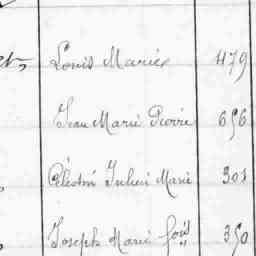 et, Louis Marie 479
Jean Marie Pierre 656
Célestin Julien Marie 301
Joseph Marie 350